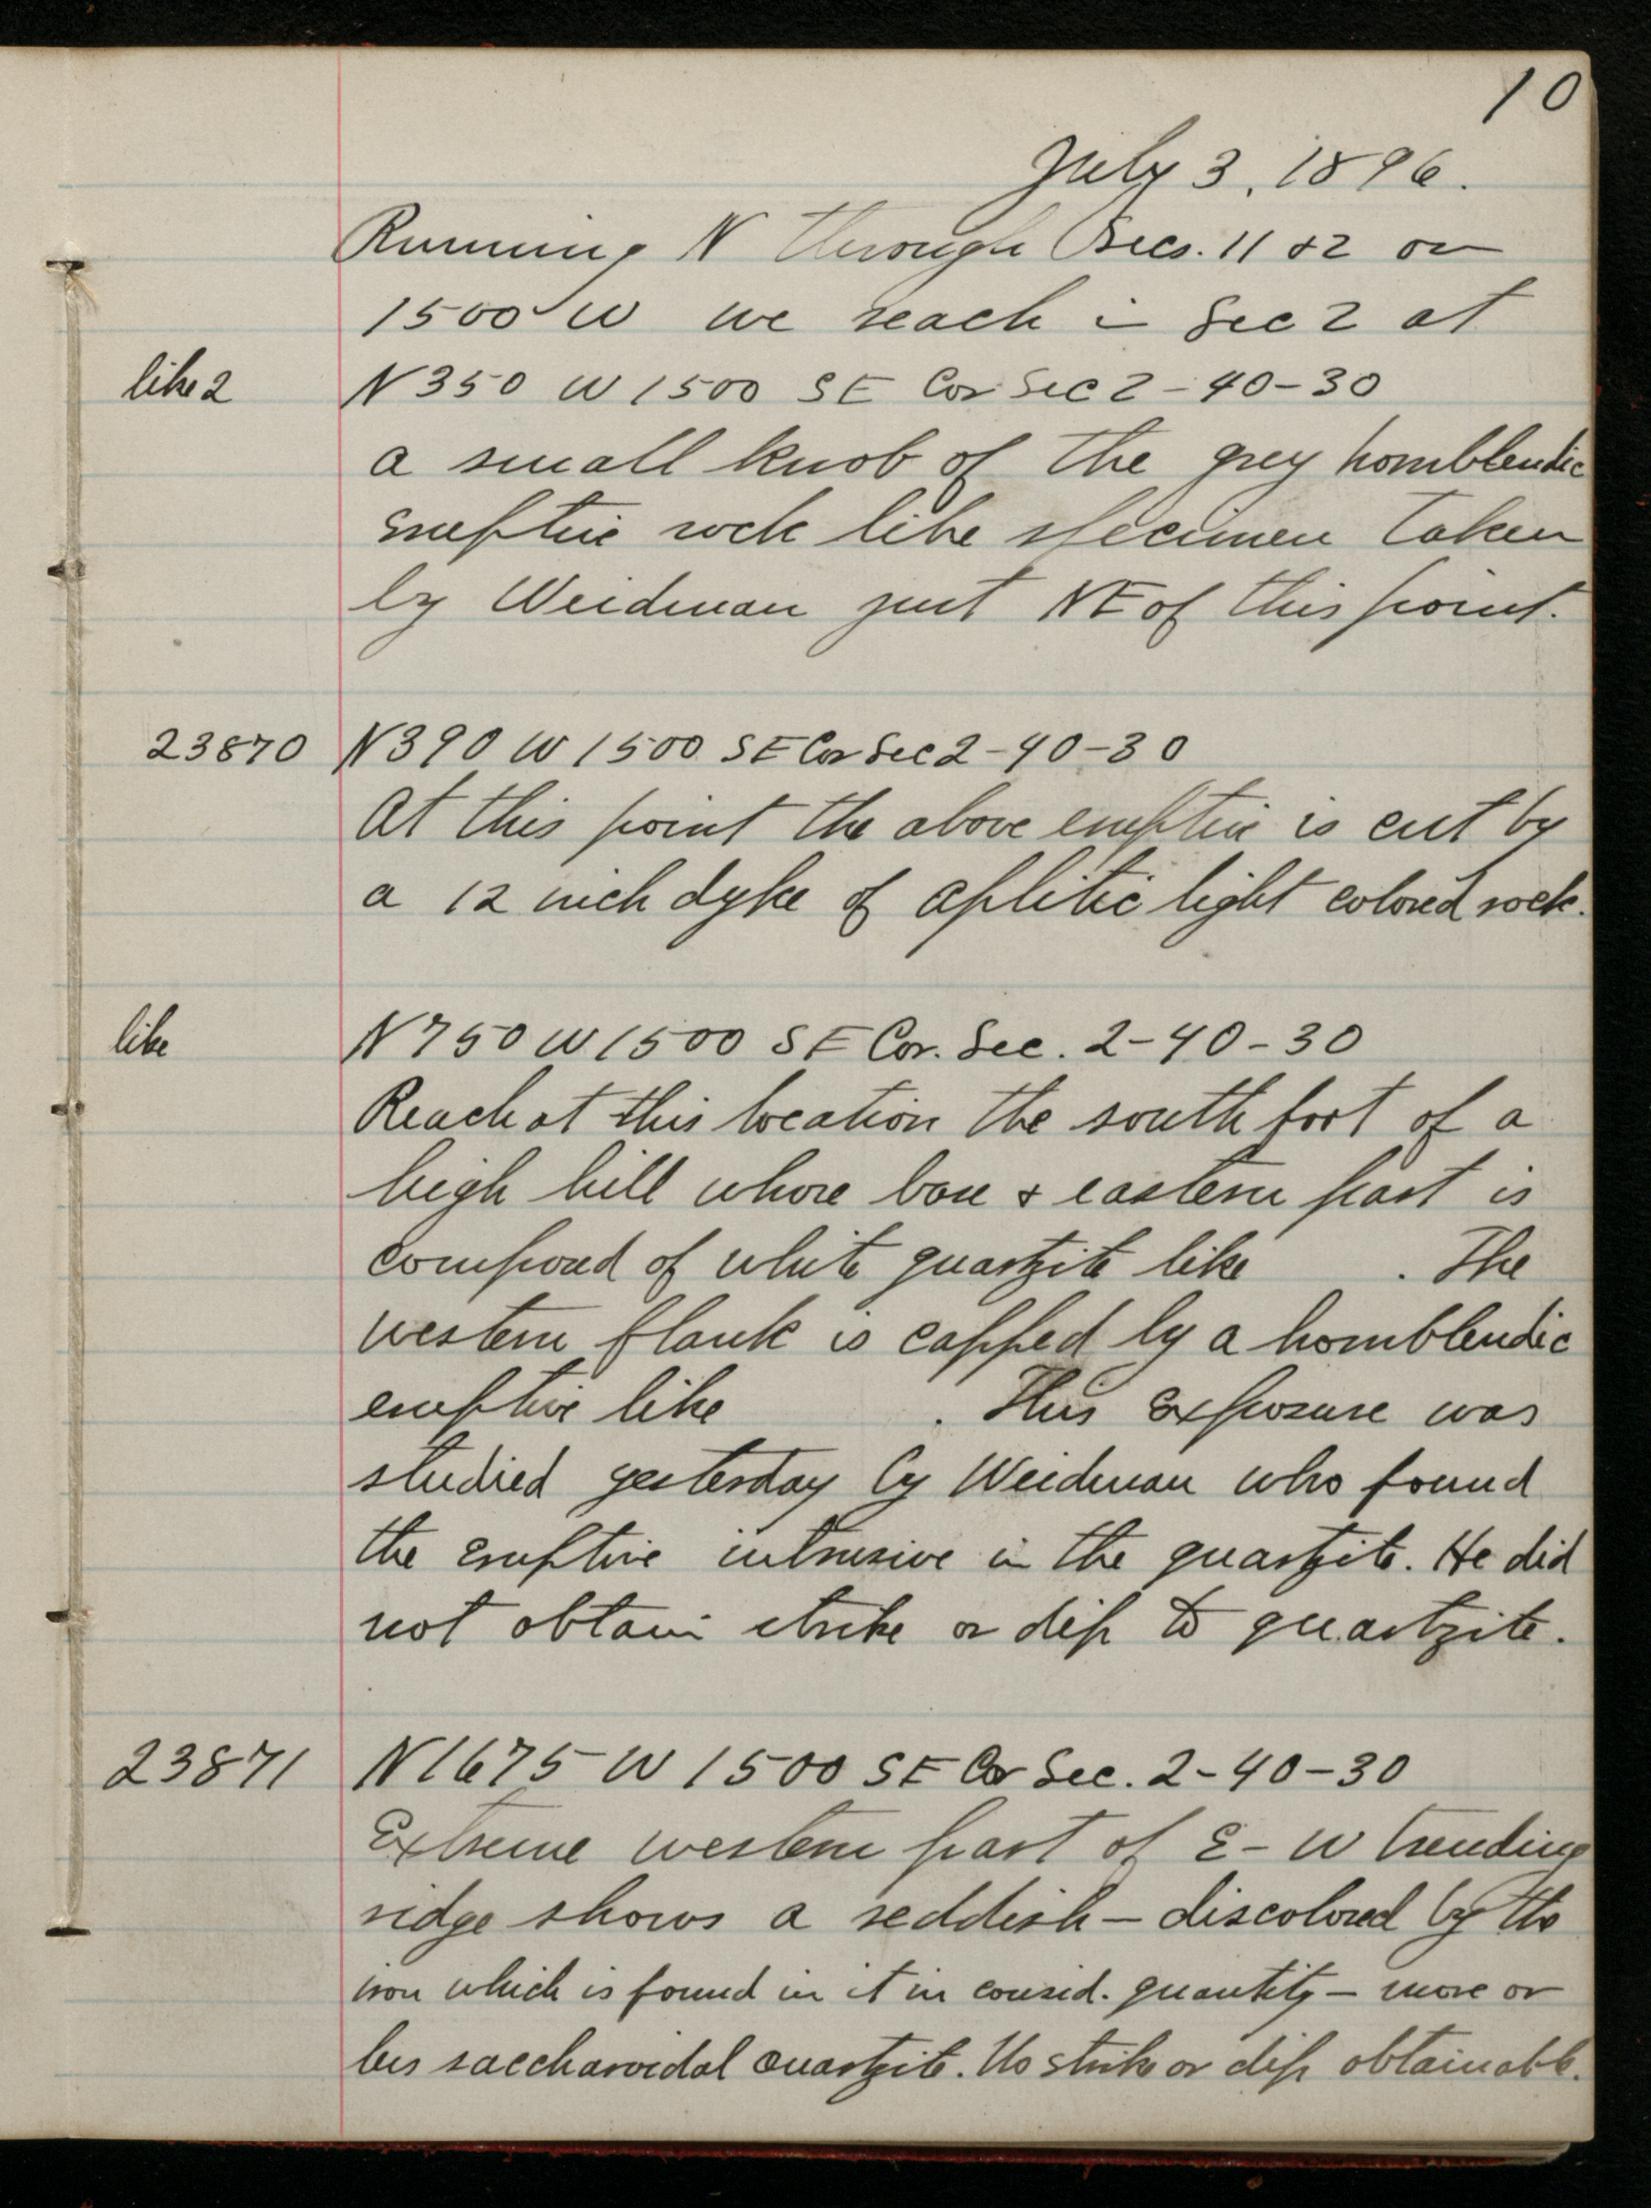 10
July 3, 1896.
Running N through Secs. 11 & 2 on
1500 W we reach in Sec 2 at
like 2 N 350 W 1500 SE Cor Sec 2-40-30
a small knob of the grey hornblendic
eruptive rock like specimen taken
by Weidman just NE of this point.
23870 N390 W 1500 SE Cor Sec 2-40-30
At this point the above eruptive is cut by
a 12 inch dyke of aplitic light colored rock.
like N750 W 1500 SE Cor. Sec. 2-40-30
Reach at this location the south foot of a
high hill whose base & eastern part is
composed of white quartzite like . The
western flank is capped by a hornblendic
eruptive like . This exposure was
studied yesterday by Weidman who found
the eruptive intrusive in the quartzite. He did
not obtain strike or dip to quartzite.
23871 N1675 W 1500 SE Cor Sec. 2-40-30
Extreme western part of E-W trending
ridge shows a reddish - discolored by the
iron which is found in it in consid. quantity - more or
less saccharoidal quartzite. No strike or dip obtainable.